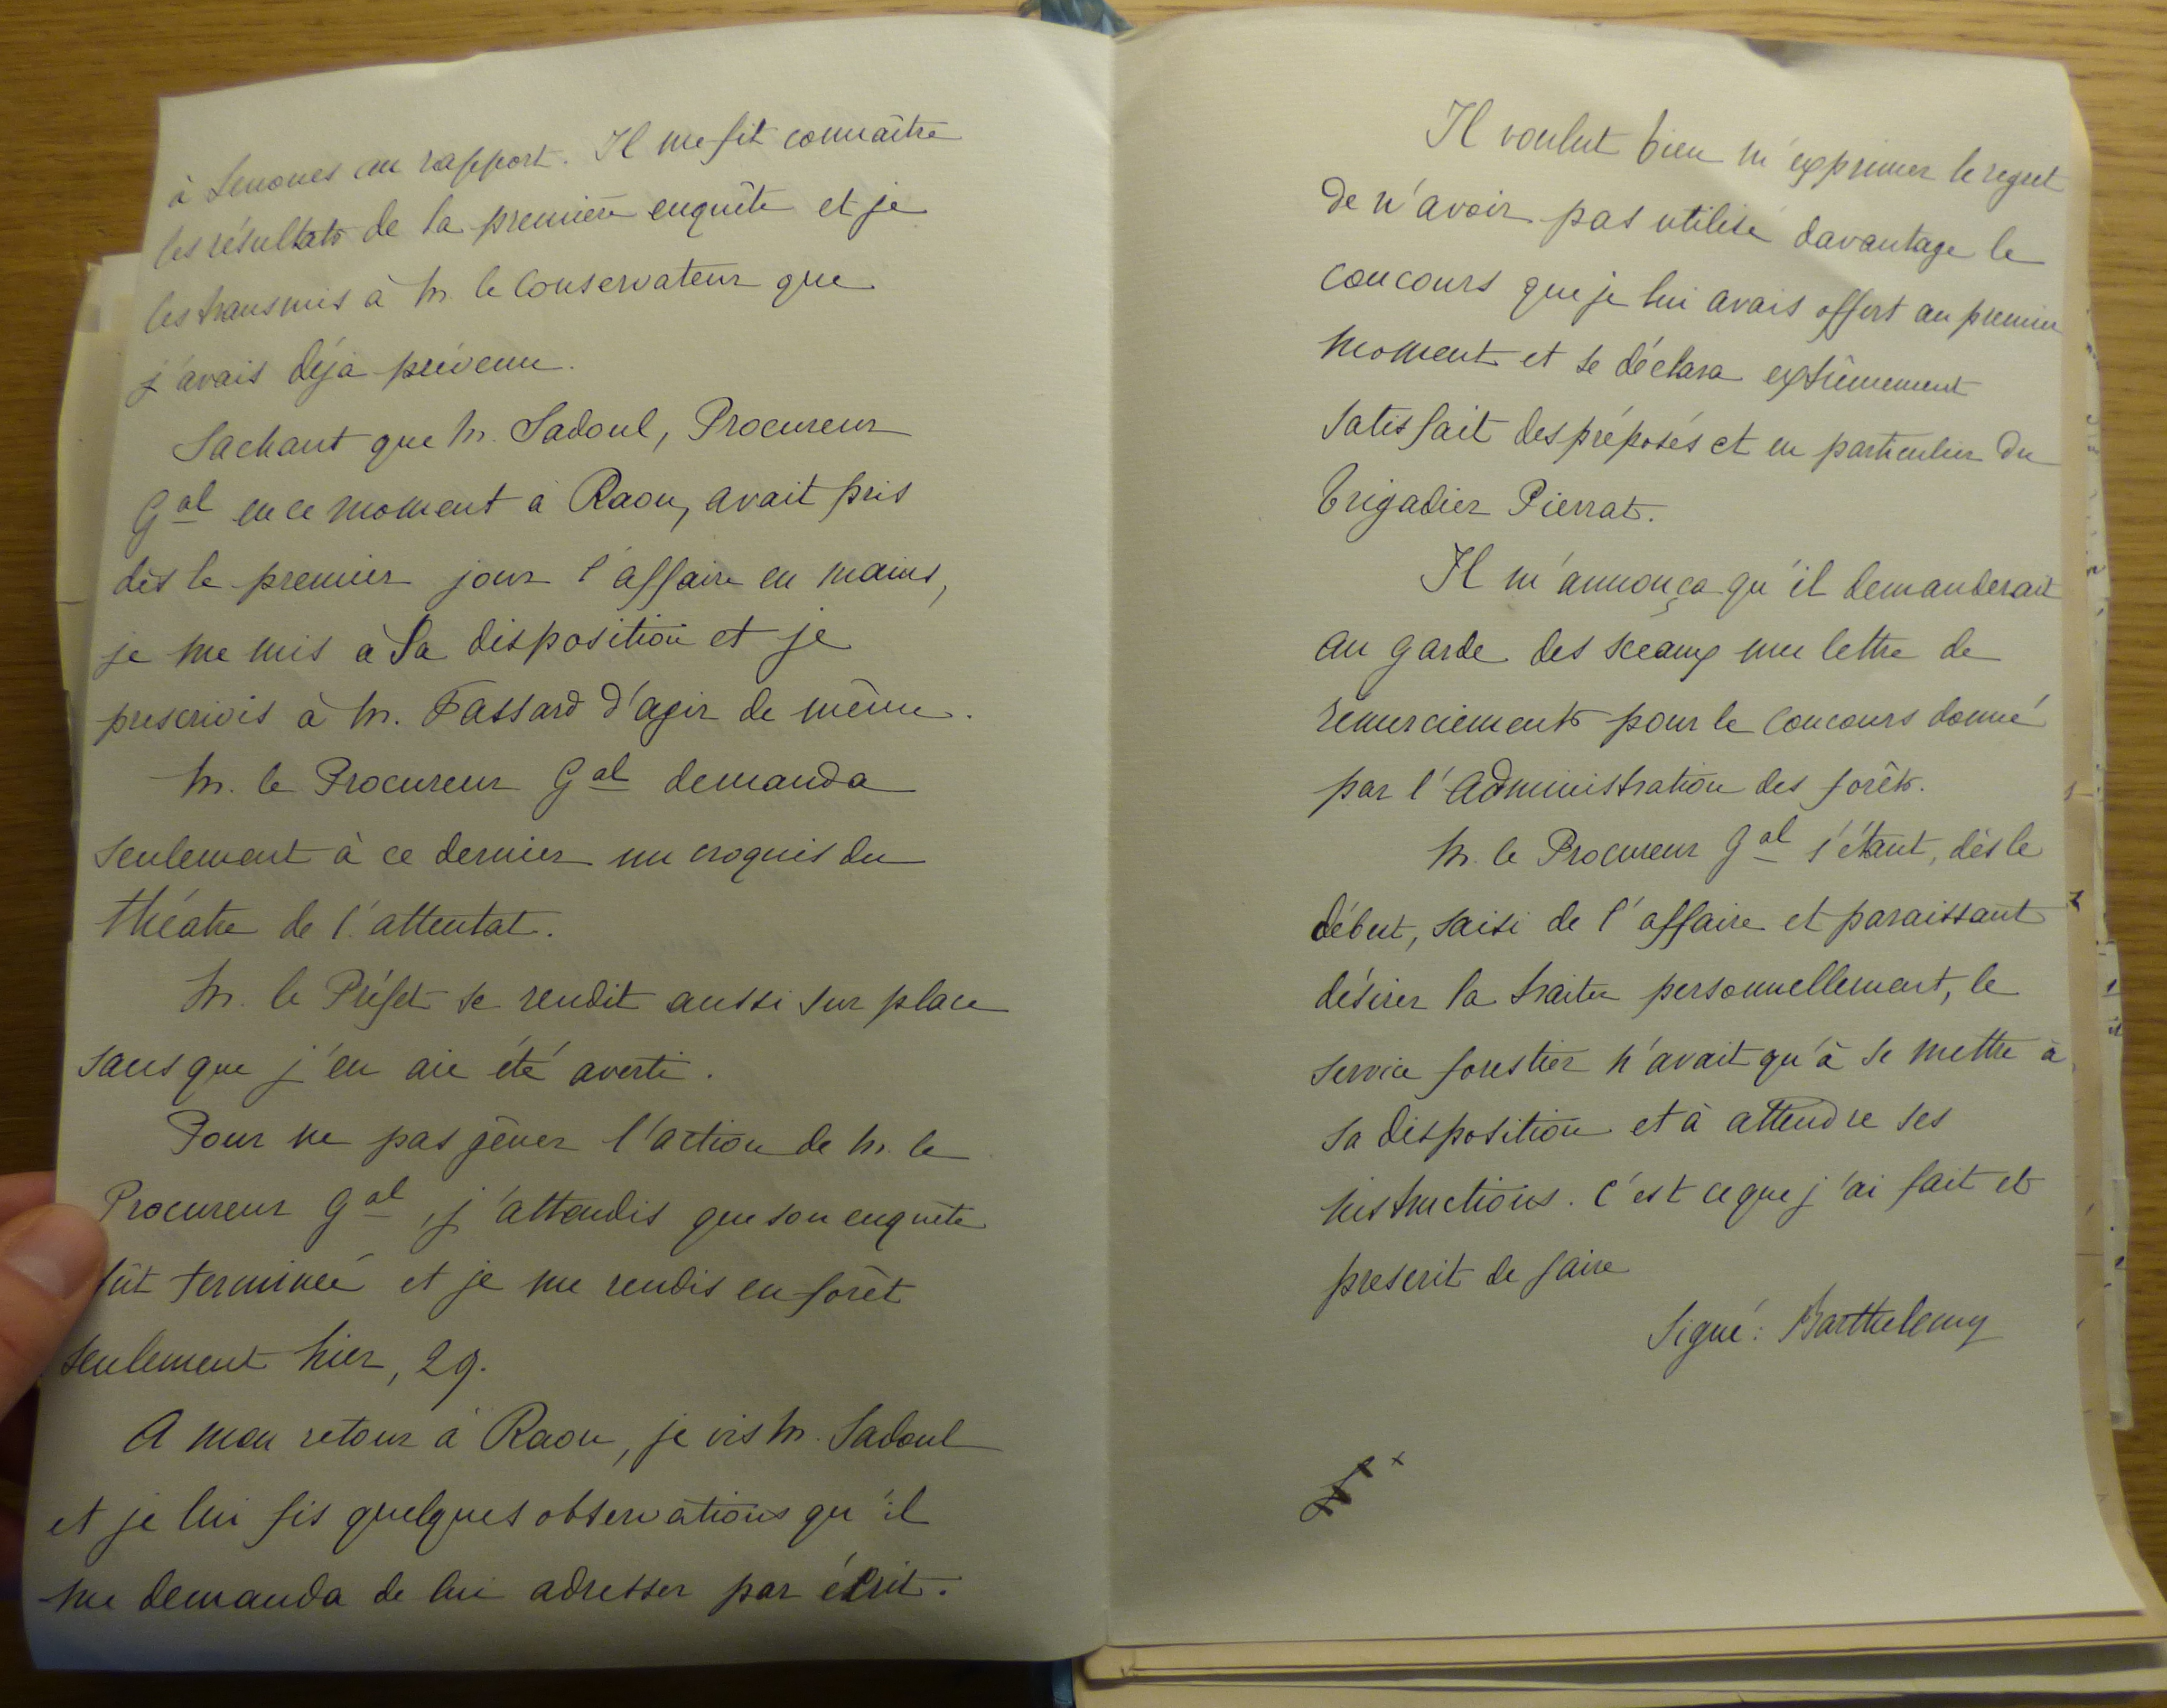 à Senones au rapport. Il me fit connaître
les résultats de la première enquête et je
les transmis à M. le Conservateur que
j'avais déjà prévenu.
Sachant que M. Sadoul, Procureur
Gal en ce moment à Raon, avait pris
dès le premier jour l'affaire en mains,
je me mis à Sa disposition et je
prescrivis à M. Fassard d'agir de même.
M. le Procureur Gal demanda
seulement à ce dernier un croquis du
théatre de l'attentat.
M. le Préfet se rendit aussi sur place
sans que j'en aie été averti.
Pour ne pas gêner l'action de M. le
Procureur Gal, j'attendis que son enquête
fût terminée et je me rendis en forêt
seulement hier, 29.
A mon retour à Raon, je vis M. Sadoul
et je lui fis quelques observations qu'il
me demanda de lui adresser par écrit.
Il voulut bien m'exprimer le regret
de n'avoir pas utilisé davantage le
concours que je lui avais offert au premier
moment et se déclara extrêmement
satisfait des préposés et en particulier du
brigadier Pierrat.
Il m'annonça qu'il demanderait
au garde des sceaux une lettre de
remerciements pour le concours donné
par l'Administration des forêts.
M. le Procureur Gal s'étant, dès le
début, saisi de l'affaire et paraissant
désirer la traiter personnellement, le
service forestier n'avait qu'à se mettre à
sa disposition et à attendre ses
instructions. C'est ce que j'ai fait et
prescrit de faire
Signé: Barthelemy